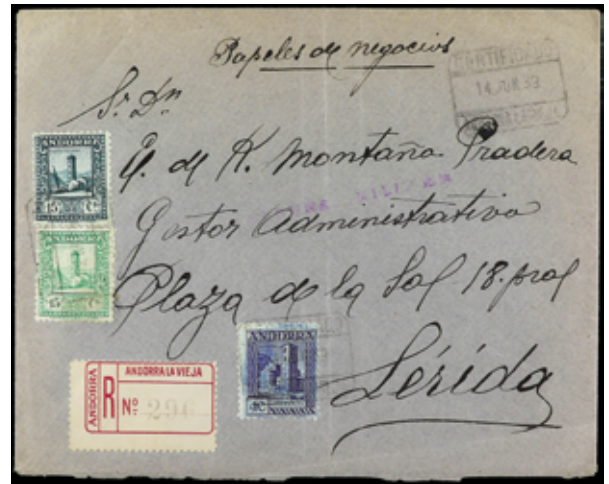 Papeles de negocios
CERTIFICADO
14 JUN 39
Sr. Dn
G. de R. Montaña Pradera
Gestor Administrativo
Plaza de la Sal 18. pral
Lérida
ANDORRA
15 Cts
ANDORRA
15 Cts
ANDORRA
ANDORRA
ANDORRA LA VIEJA
R Nº 296